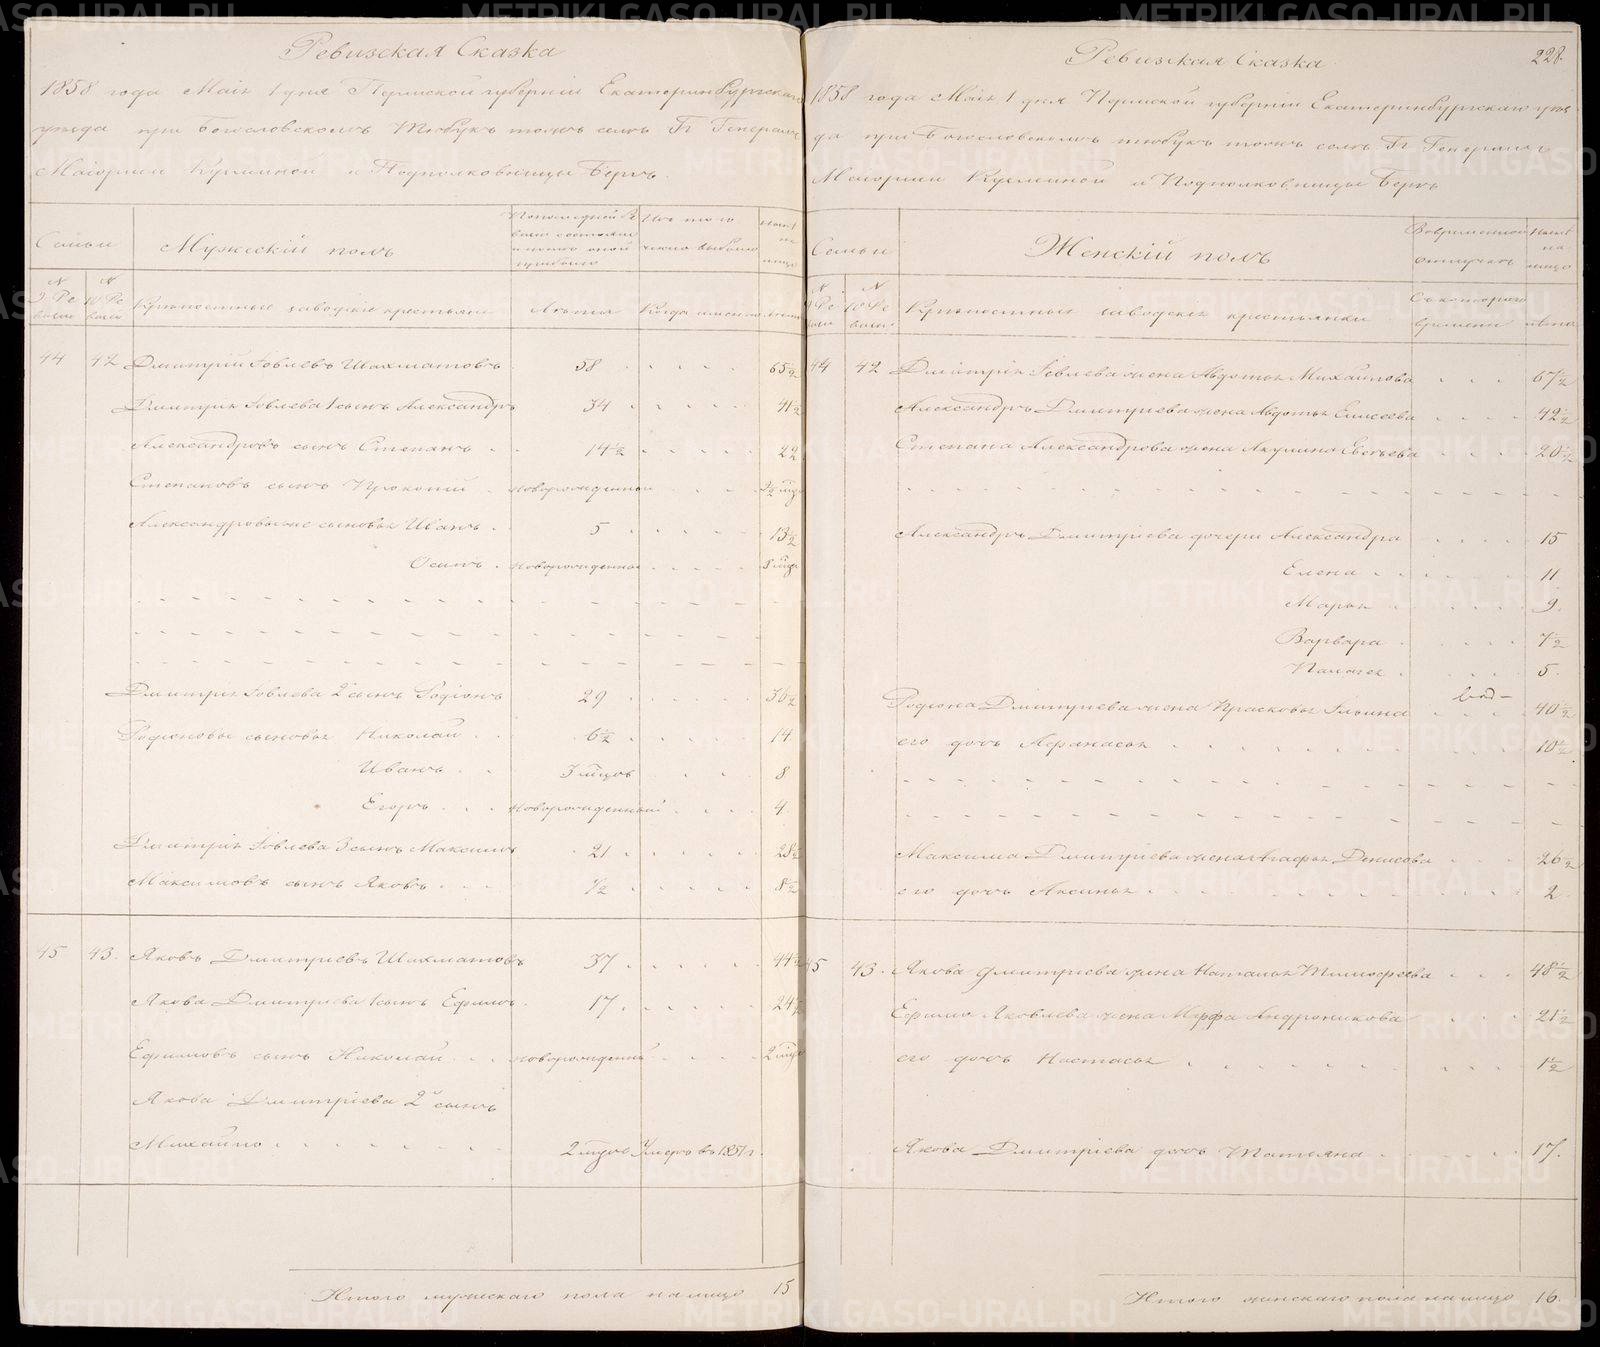 Ревизская Сказка
1858 года Маія 1 дня Пермской губерніи Екатеринбургскаго
уѣзда при Богословскомъ Тюбукъ тожъ селѣ Гг Генералъ
Маіорши и Подполковницы Бергъ.
Семьи
Мужескій полъ
Изъ того числа выбыло
Нынѣ на лицо
№ 9 Ре визіи
№ 10 Ре визіи
Крѣпостные заводскіе крестьяне
Лѣта
Когда именно
Лѣта
44 42 Дмитрій Іовлевъ Шахматовъ 58 65½
Дмитрія Іовлева 1 сынъ Александръ 34 41½
Александровъ сынъ Степанъ 14½ 22
Степановъ сынъ Прокопій новорожденный
Александровы сыновья Иванъ 5 13½
Осипъ новорожденный 8 мѣц
Дмитрія Іовлева 2й сынъ Родіонъ 29 36½
Родіоновы сыновья Николай 6½ 14
Иванъ 3 мѣцовъ 8
Егоръ новорожденный 4
Дмитрія Іовлева 3 сынъ Максимъ 21 28½
Максимовъ сынъ Яковъ ½ 8½
45 43. Яковъ Дмитріевъ Шахматовъ 37 44½
Якова Дмитріева 1 сынъ Ефимъ 17 24½
Ефимовъ сынъ Николай новорожденный 2 мѣц
Якова Дмитріева 2й сынъ
Михайло 2 мѣцовъ Умеръ въ 1851 г.
Итого мужескаго пола на лицо 15
228.
Ревизская Сказка
1858 года Маія 1 дня Пермской губерніи Екатеринбургскаго уѣз
да при Богословскомъ Тюбукъ тожъ селѣ Гг Генералъ
Маіорши и Подполковницы Бергъ
Семьи
Женскій полъ
Во временной отлучкѣ
Нынѣ на лицо
№ 9 Ре визіи
№ 10 Ре визіи
Крѣпостныя заводскія крестьянки
Съ котораго времени
Лѣта
44 42 Дмитрія Іовлева жена Авдотья Михайлова 67½
Александръ Дмитріева жена Авдотья Елисеева 42½
Степана Александрова жена Акулина Евсѣева 20½
Александръ Дмитріева дочери Александра 15
Елена 11
Марья 9.
Варвара 7½
Палагея 5.
Родіона Дмитріева жена Прасковья Ильина 40½
его дочь Афанасья 10½
Максима Дмитріева жена Агафья Денисова 26½
его дочь Аксинья 2
45 43. Якова Дмитріева жена Наталья Тимофеева 48½
Ефима Яковлева жена Марфа Андроникова 21½
его дочь Настасья 1½
Якова Дмитріева дочь Татьяна 17.
Итого женскаго пола на лицо 16.
METRIKI.GASO-URAL.RU